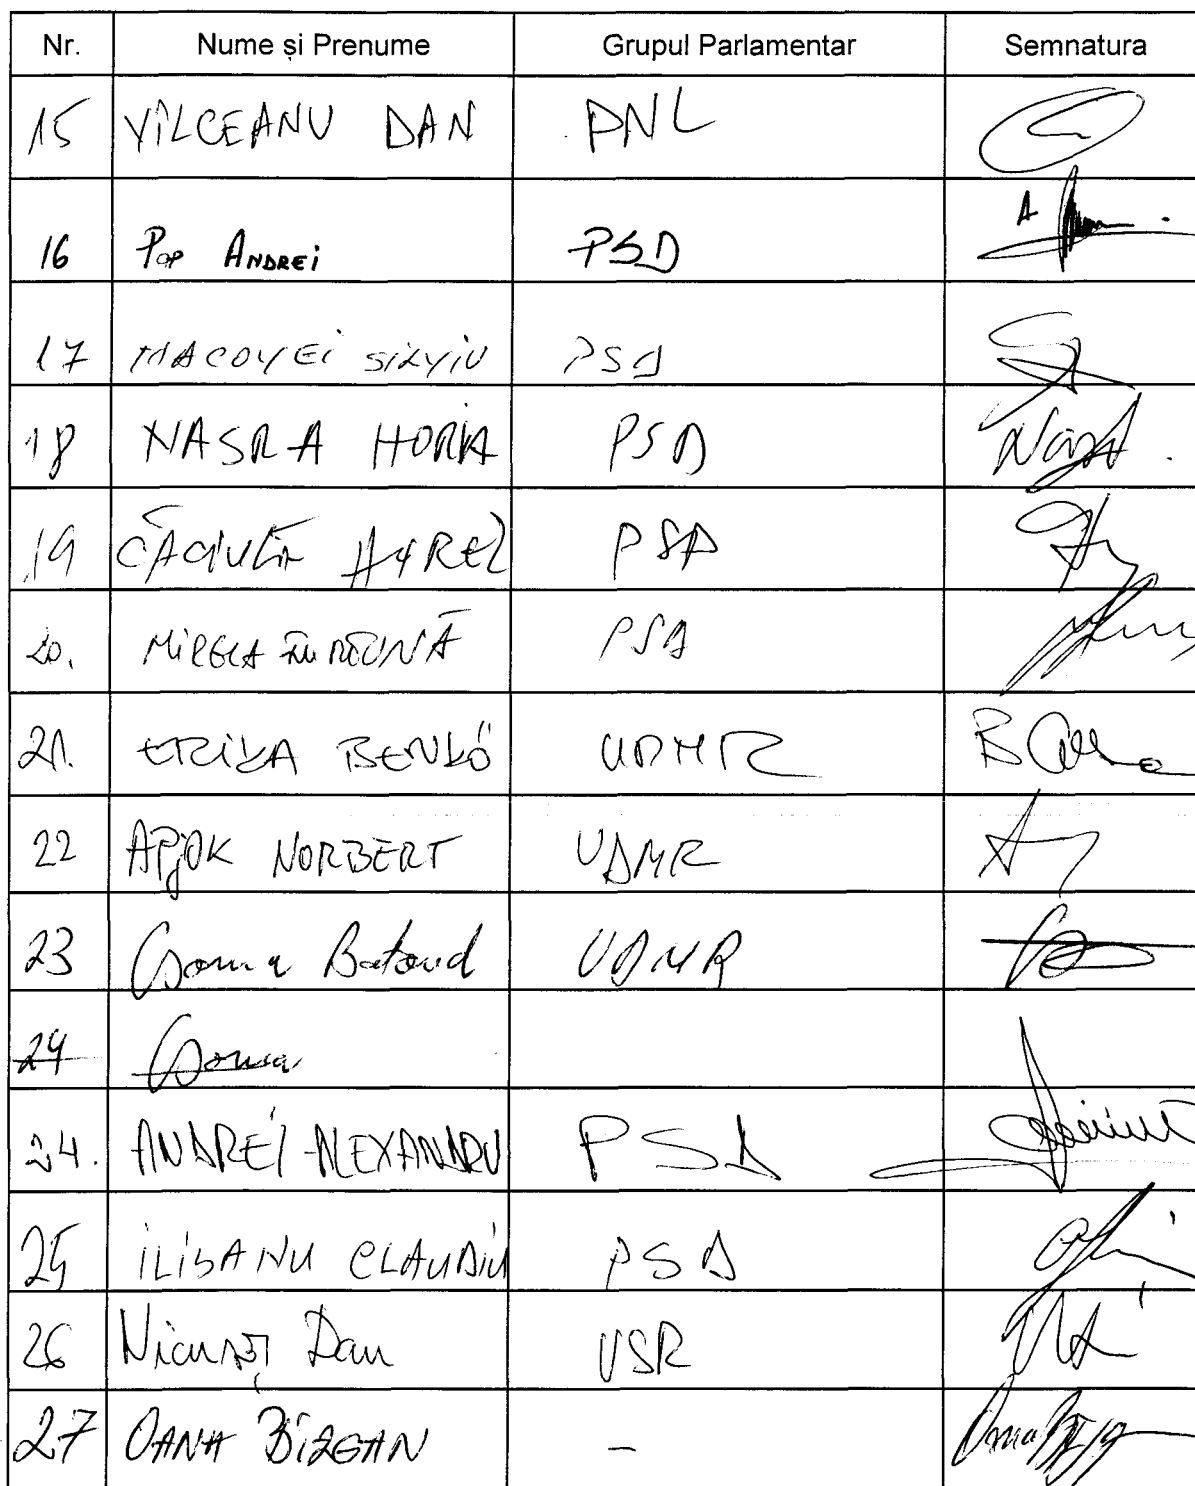 Nr. Nume și Prenume Grupul Parlamentar Semnatura
15 VÎLCEANU DAN PNL
16 POP ANDREI PSD
17 MACOVEI SILVIU PSD
18 NASRA HORIA PSD
19 CĂCIULĂ AUREL PSD
20. MIRCEA PSD
21. ERIKA BENKŐ UDMR
22 APJOK NORBERT UDMR
23 Csoma Botond UDMR
24 Csoma
24. ANDREI ALEXANDRU PSD
25 ILIȘANU CLAUDIU PSD
26 Nicușor Dan USR
27 OANA BÎZGAN –